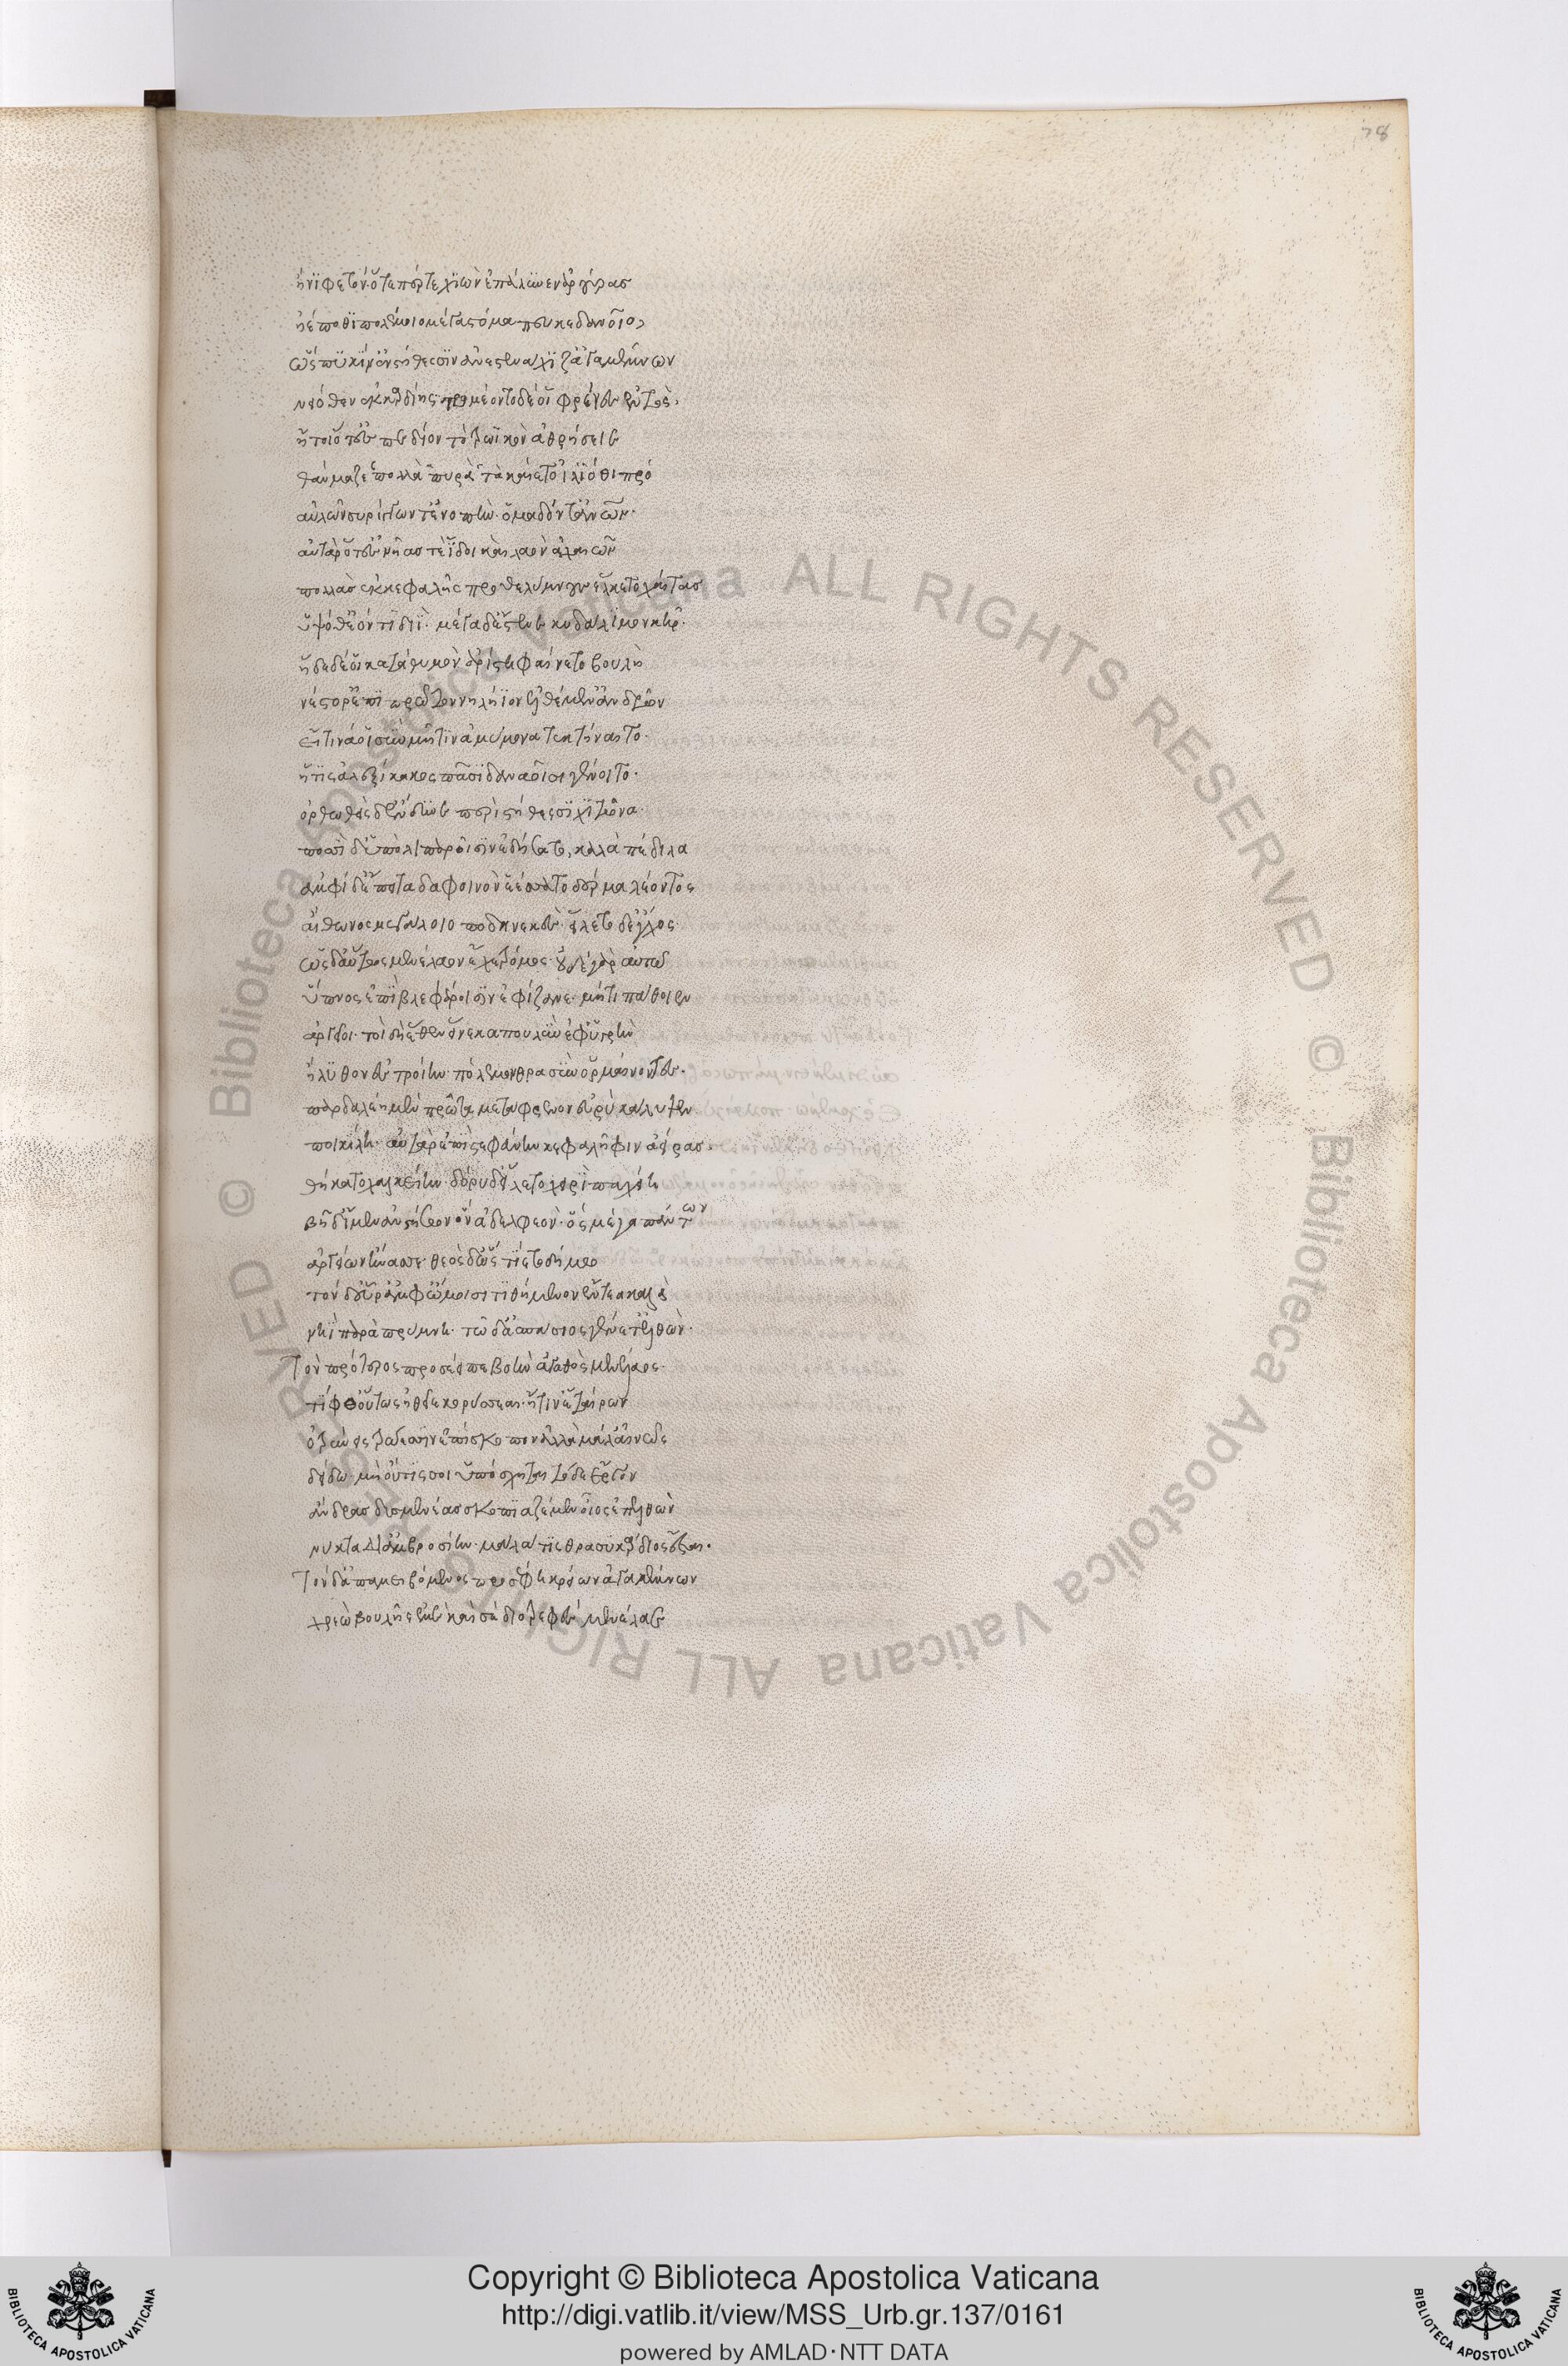 78
ἢ νιφετὸν ὅτε πέρ τε χιὼν ἐπάλυνεν ἀρούρας
ἠέ ποθι πολέμοιο μέγα στόμα πευκεδανοῖο,
ὣς πυκίν' ἐν στήθεσσιν ἀνεστενάχιζ' ἀγαμέμνων
νειόθεν ἐκ κραδίης· τρομέοντο δέ οἱ φρένες ἐντός·
ἤτοι ὅτ' ἐς πεδίον τὸ τρωϊκὸν ἀθρήσειε
θαύμαζε πολλὰ πυρὰ τὰ καίετο ἰλιόθι πρό
αὐλῶν συρίγγων τ' ἐνοπὴν· ὅμαδόν τ' ἀνθρώπων·
αὐτὰρ ὅτ' ἐς νῆας τε ἴδοι καὶ λαὸν ἀχαιῶν
πολλὰς ἐκ κεφαλῆς προθελύμνους ἕλκετο χαίτας
ὑψόθ' ἐόντι διῒ· μέγα δ' ἔστενε κυδάλιμον κῆρ·
ἥδε δέ οἱ κατὰ θυμὸν ἀρίστη φαίνετο βουλὴ
νέστορ' ἔπι πρῶτον νηλήϊον ἐλθέμεν ἀνδρῶν
εἴ τινά οἱ σὺν μῆτιν ἀμύμονα τεκτήναιτο·
ἥτις ἀλεξίκακος πᾶσι δαναοῖσι γένοιτο·
ὀρθωθεὶς δ' ἔνδυνε περὶ στήθεσσι χιτῶνα·
ποσσὶ δ' ὑπὸ λιπαροῖσιν ἐδήσατο, καλὰ πέδιλα
ἀμφὶ δ' ἔπειτα δαφοινὸν ἑέσσατο δέρμα λέοντος
αἴθωνος μεγάλοιο ποδηνεκὲς· εἵλετο δ' ἔγχος·
ὣς δ' αὔτως μενέλαον ἔχε τρόμος· οὐδὲ γὰρ αὐτῷ
ὕπνος ἐπὶ βλεφάροισιν ἐφίζανε· μήτι πάθοιεν
ἀργεῖοι· τοὶ δὴ ἕθεν εἵνεκα πουλὺν ἐφ' ὑγρὴν
ἤλυθον ἐς τροίην· πόλεμον θρασὺν ὁρμαίνοντες·
παρδαλέῃ μὲν πρῶτα μετάφρενον εὐρὺ κάλυψεν
ποικίλῃ· αὐτὰρ ἐπὶ στεφάνην κεφαλῆφιν ἀείρας·
θήκατο χαλκείην· δόρυ δ' εἵλετο χειρὶ παχείῃ
βῆ δ' ἴμεν ἀνστήσων ὃν ἀδελφεὸν· ὃς μέγα πάντων
ἀργείων ἤνασσε· θεὸς δ' ὣς τίετο δήμῳ
τὸν δ' εὗρ' ἀμφ' ὤμοισι τιθήμενον ἔντεα καλὰ
νηῒ πάρα πρύμνῃ· τῷ δ' ἀσπάσιος γένετ' ἐλθών·
Τὸν πρότερος προσέειπε βοὴν ἀγαθὸς μενέλαος·
τίφθ' οὕτως ἠθεῖε κορύσσεαι· ἤ τιν' ἑταίρων
ὀτρύνεις τρώεσσιν ἐπίσκοπον· ἀλλὰ μάλ' αἰνῶς
δείδω μὴ οὔτις τοι ὑπόσχηται τόδε ἔργον
ἄνδρας δυσμενέας σκοπιαζέμεν οἶος ἐπελθὼν
νύκτα δι' ἀμβροσίην· μάλα τις θρασυκάρδιος ἔσται·
Τὸν δ' ἀπαμειβόμενος προσέφη κρείων ἀγαμέμνων
χρεὼ βουλῆς ἐμὲ καὶ σὲ διοτρεφὲς μενέλαε
Copyright © Biblioteca Apostolica Vaticana
http://digi.vatlib.it/view/MSS_Urb.gr.137/0161
powered by AMLAD·NTT DATA
© Biblioteca Apostolica Vaticana ALL RIGHTS RESERVED © Biblioteca Apostolica Vaticana ALL RIGHTS RESERVED
BIBLIOTECA APOSTOLICA VATICANA
BIBLIOTECA APOSTOLICA VATICANA